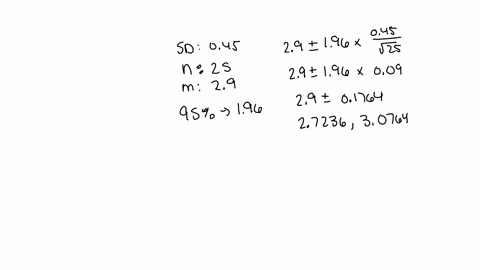 SD: 0.45
n: 25
m: 2.9
95% → 1.96
2.9 ± 1.96 × 0.45/√25
2.9 ± 1.96 × 0.09
2.9 ± 0.1764
2.7236, 3.0764